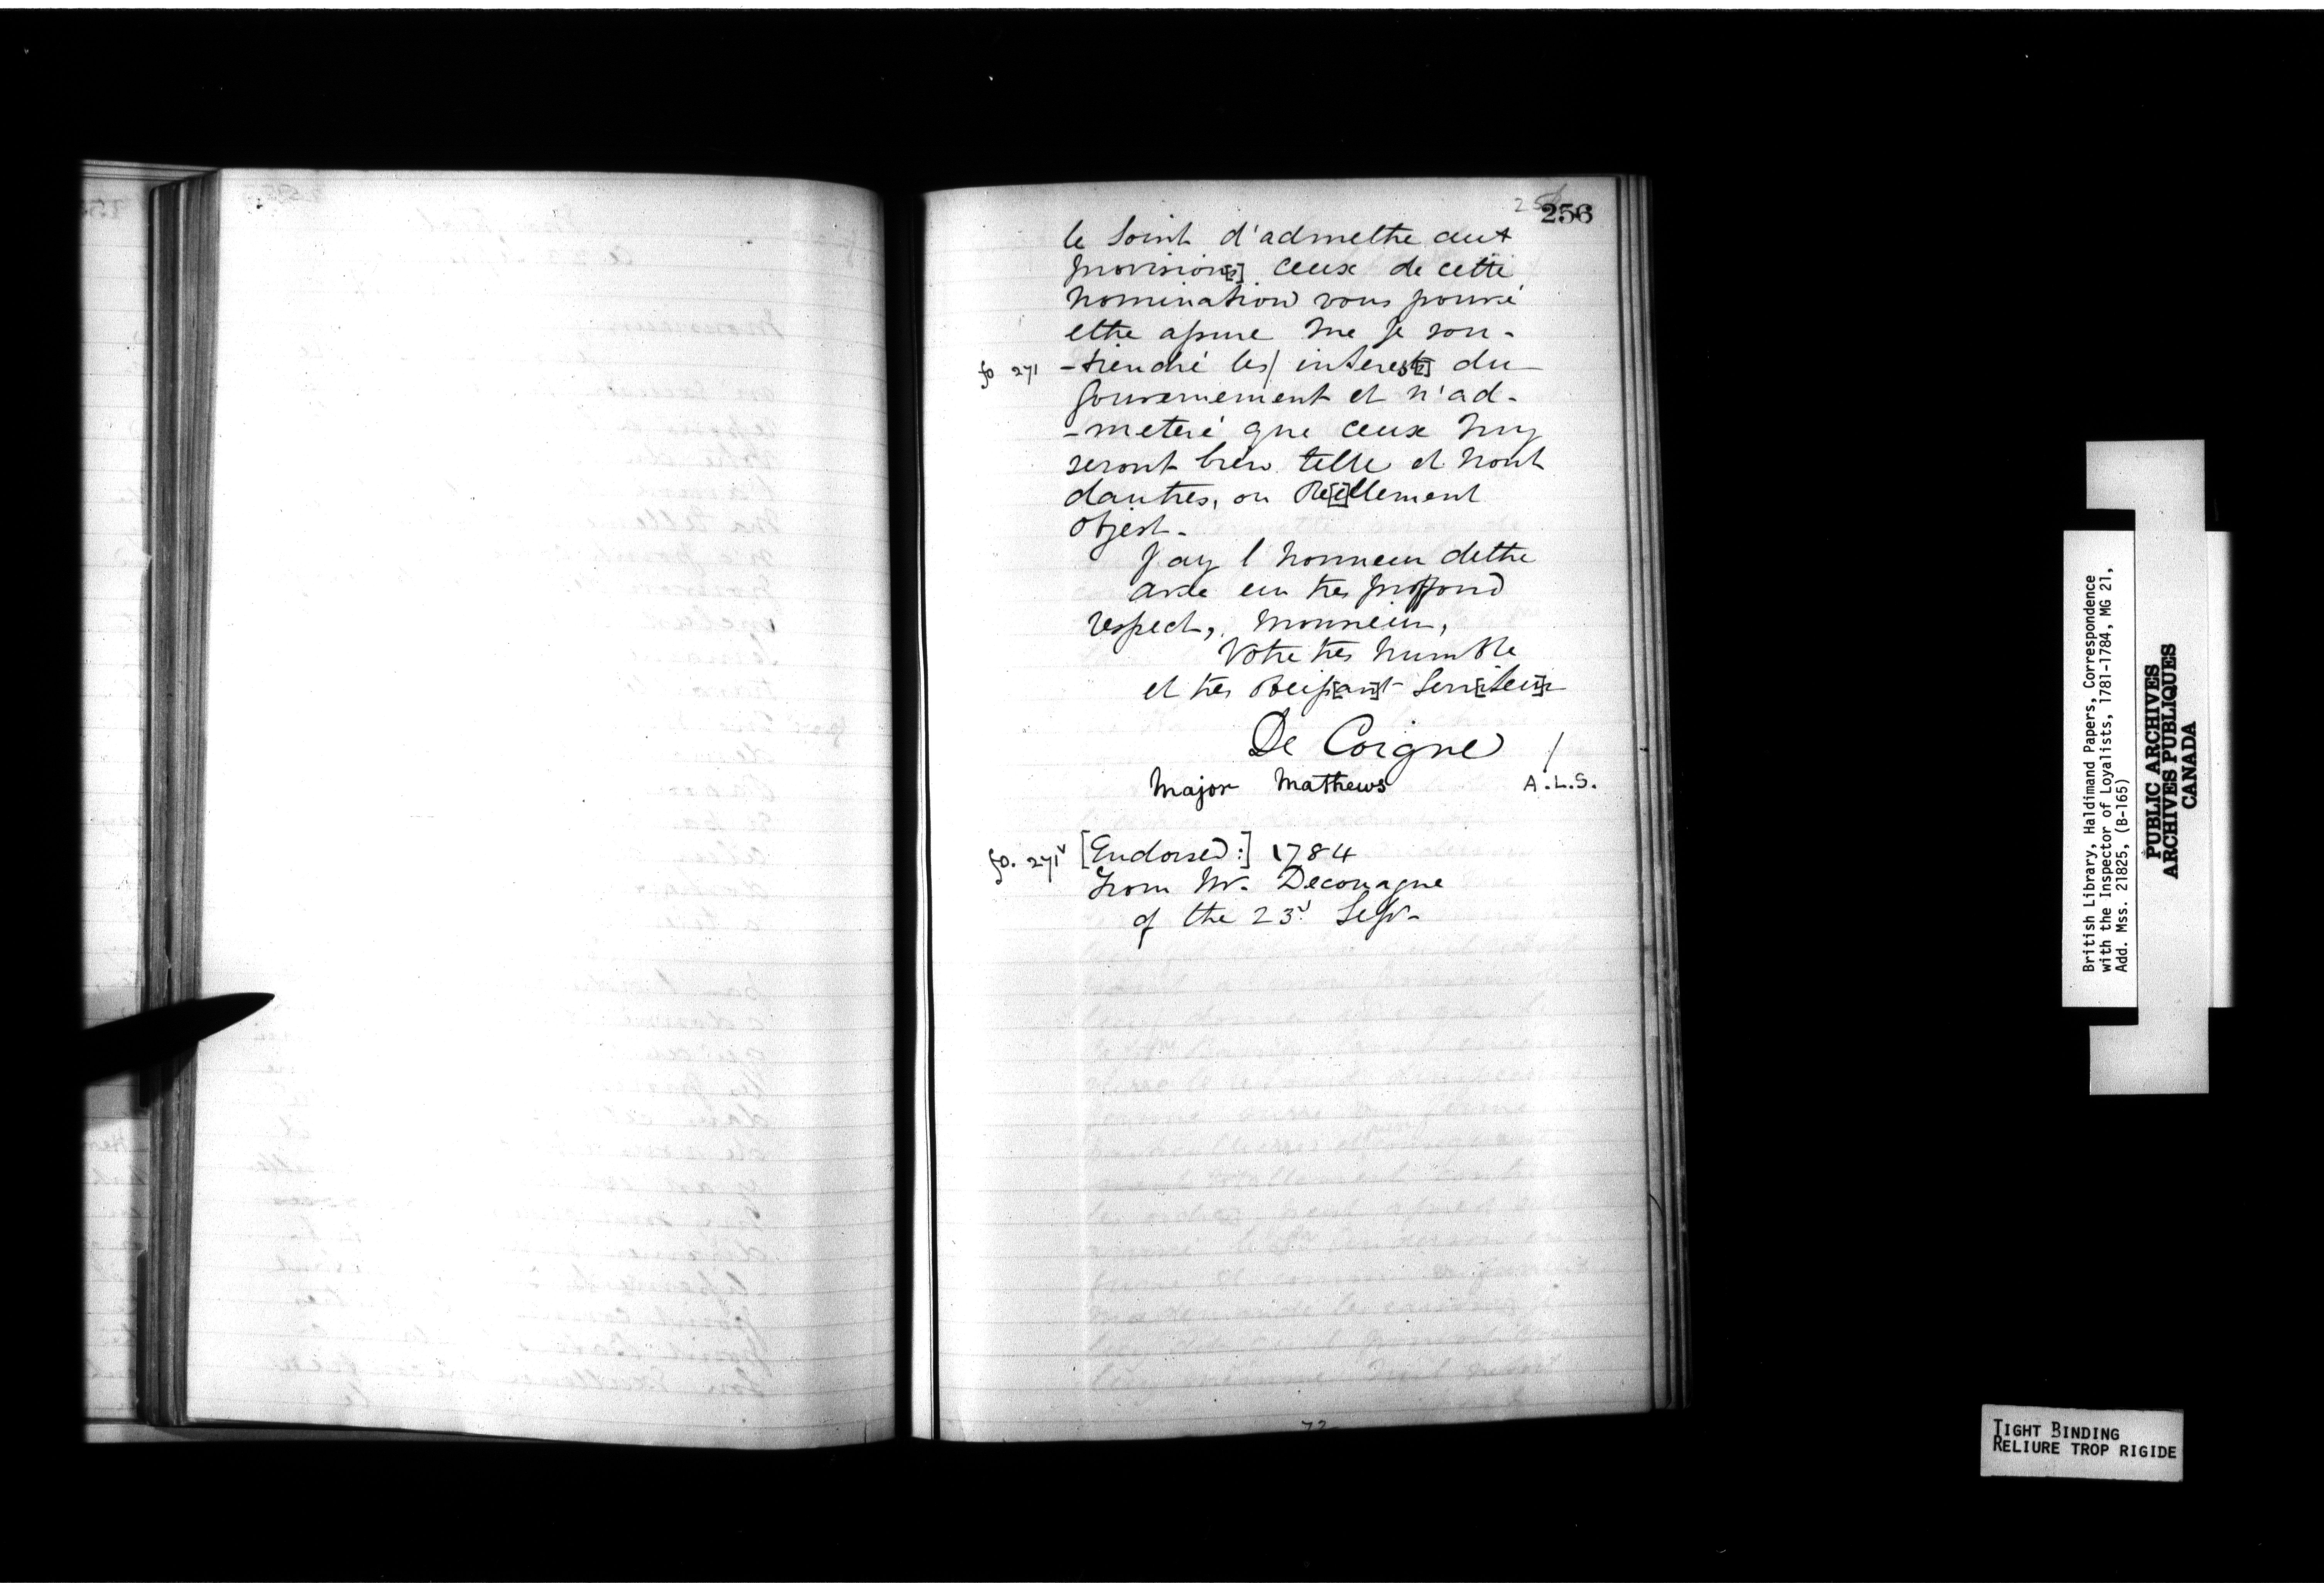 256
le soint d'admettre aux
provision[s] ceux de cette
nomination vous pouvé
ettre assure que je sou-
fo 271 -tiendré les/ interest[s] du
gouvernement et n'ad-
-meteré que ceux quy
seront bien telle et nont
dautres, ou Re[e]llement
objest.
J'ay l honneur dettre
avec un tres proffond
respect, Monsieur,
Votre tres humble
et tres Obeiss[an]t Serv[iteu]r
De Coigne /
Major Mathews A.L.S.
fo. 271v [Endorsed:] 1784
From Mr. Decouagne
of the 23d Sepr.
72
British Library, Haldimand Papers, Correspondence
with the Inspector of Loyalists, 1781-1784, MG 21,
Add. Mss. 21825, (B-165)
PUBLIC ARCHIVES
ARCHIVES PUBLIQUES
CANADA
TIGHT BINDING
RELIURE TROP RIGIDE